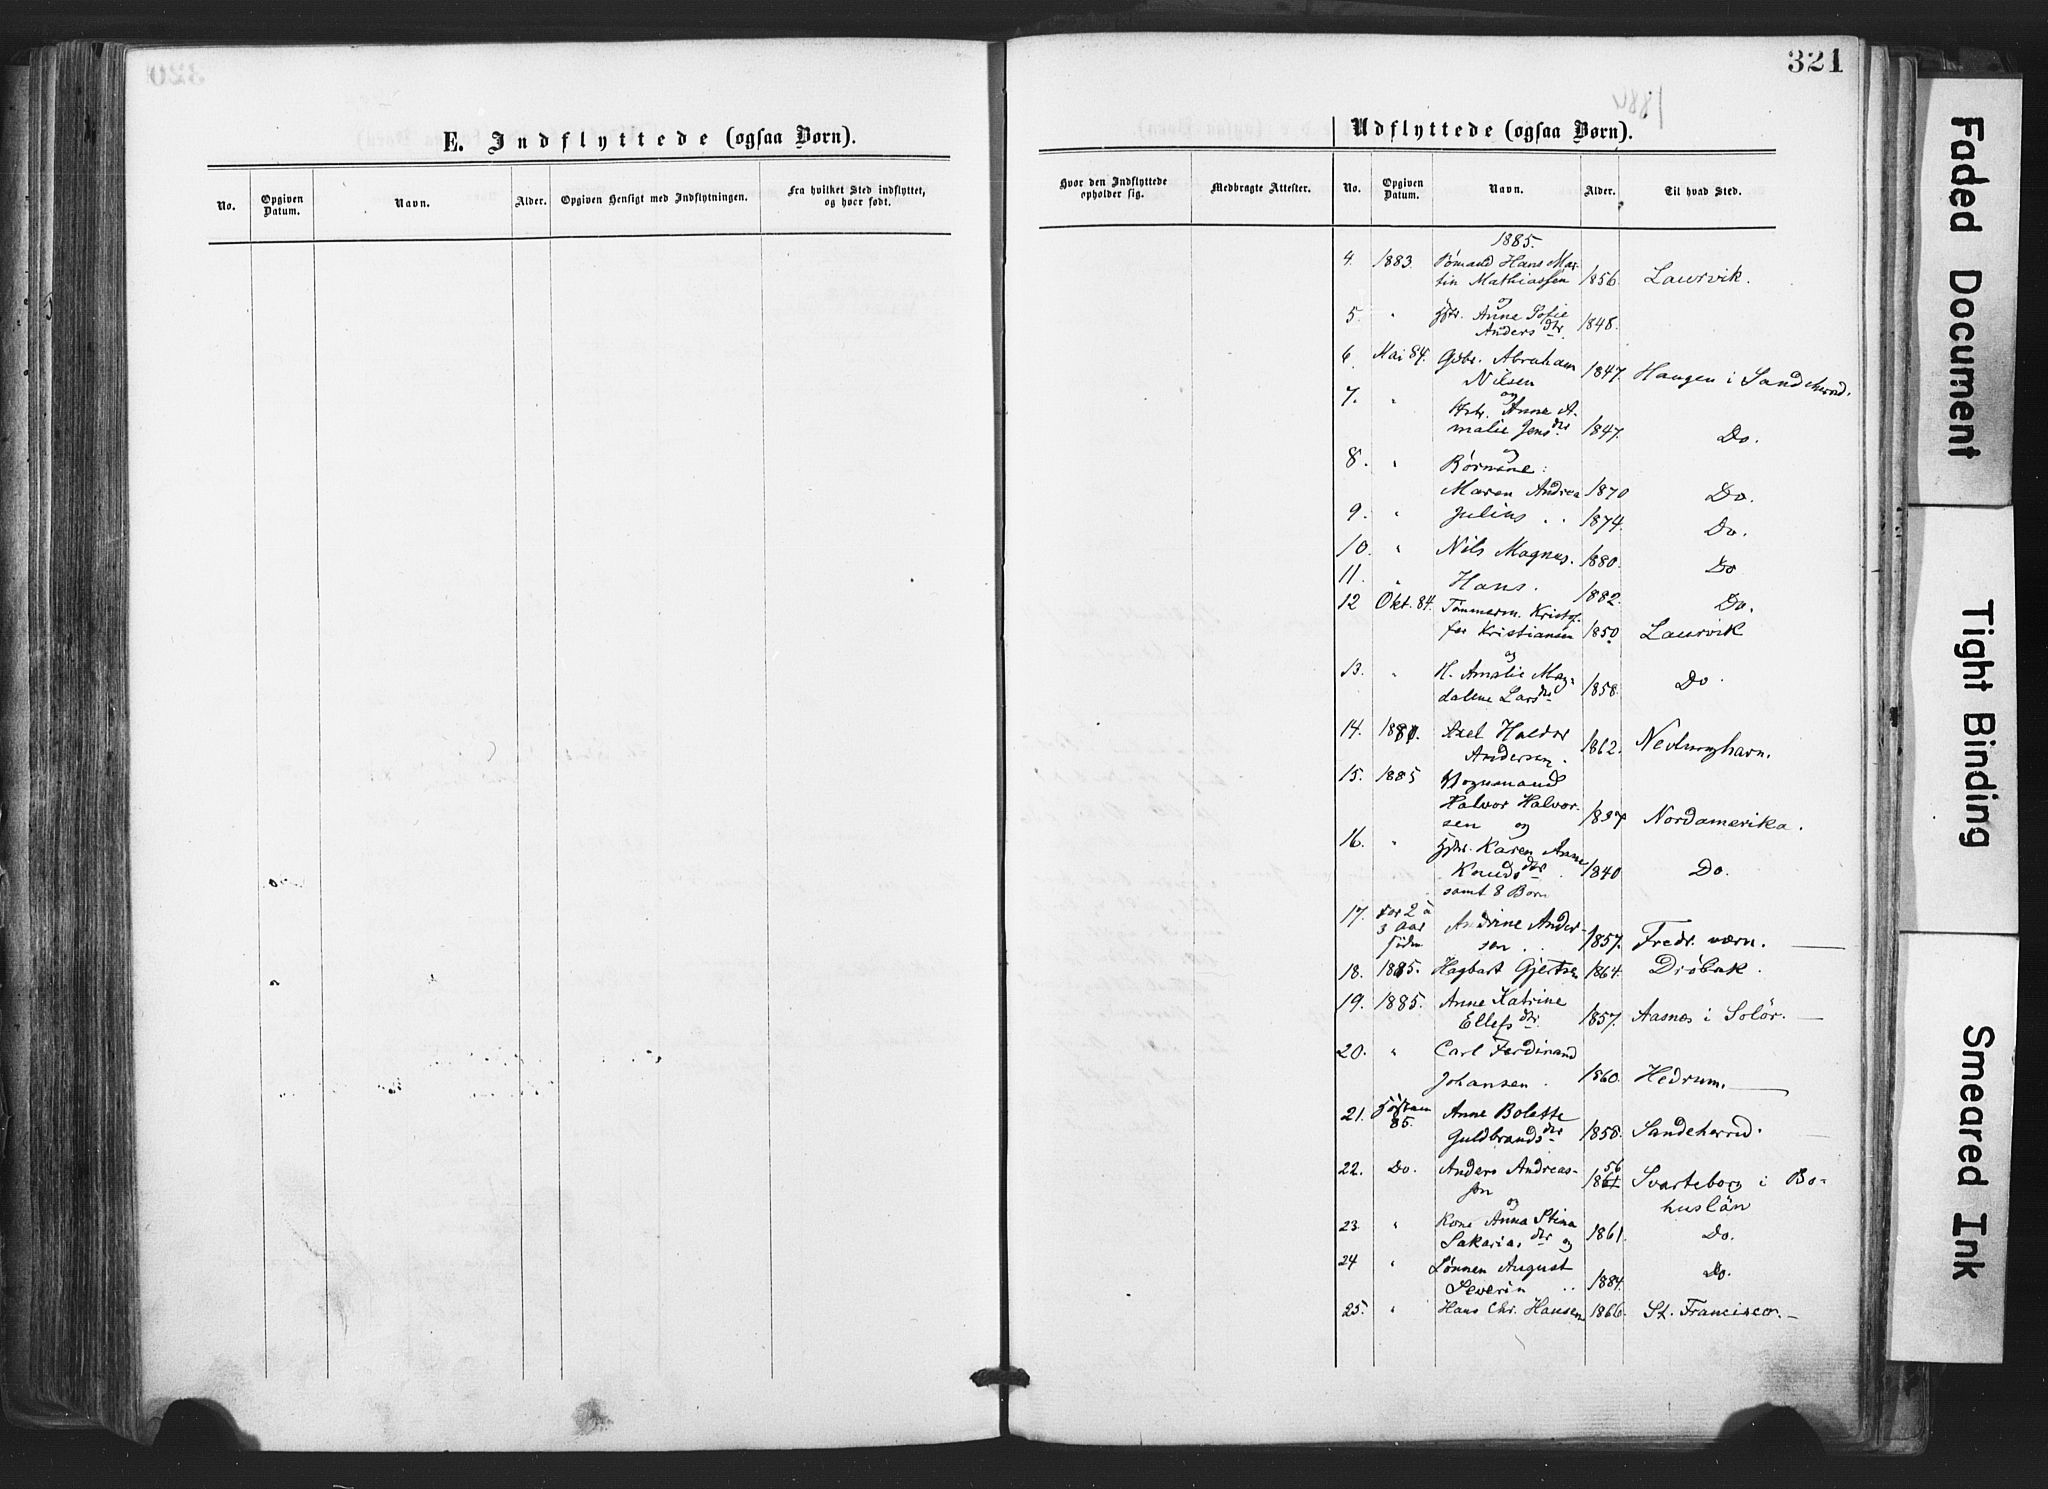 321
E. Indflyttede (ogsaa Børn).
No.
Opgiven Datum.
Navn.
Alder.
Opgiven Hensigt med Indflytningen.
Fra hvilket Sted indflyttet, og hvor født.
Udflyttede (ogsaa Børn).
Hvor den Indflyttede opholder sig.
Medbragte Attester.
No.
Opgiven Datum.
Navn.
Alder.
Til hvad Sted.
1885.
4. 1883. Sømand Hans Mar-
tin Mathiassen 1856. Laurvik.
og
5. " Hstr. Anne Sofie
Anders dtr. 1848.
6. Mai 84. Gdbr. Abraham
Nilsen 1847. Haugen i Sandeherred.
og
7. " Hstr. Anne A-
malie Jens dtr 1847. Do.
og
8. " Børnene:
Maren Andrea 1870 Do.
9. " Julius 1874. Do.
10. " Nils Magnus. 1880. Do
11. " Hans. 1882. Do.
12 Okt. 84. Tømmerm. Kristof-
fer Kristiansen 1850. Laurvik
og
13. " H. Amalie Mag-
dalene Lars dtr 1858. Do.
14. 1881. Axel Haldor
Andersen. 1862. Nevlunghavn.
15. 1885 Vognmand
Halvor Halvor-
sen og 1837 Nordamerika.
16. " Hstr. Karen Anne
Knuds dtr 1840 Do.
samt 8 Børn
17. For 2 a
3 Aar
siden
Andrine Ander-
sen 1857. Fredr. værn.
18. 1885. Hagbart Gjertsen 1864. Drøbak.
19. 1885. Anne Katrine
Ellefs dtr. 1857. Aasnes i Solør.
20. " Carl Ferdinand
Johansen. 1860. Hedrum.
21. Høsten
85.
Anne Bolette
Guldbrands dtr 1858. Sandeherred.
22. Do. Anders Andreas-
sen 56 1861 Svarteborg i Bo-
huslän
og
23. " Kone Anna Stina
Sakarias dtr og 1861. Do.
24 " Sønnen August
Severin 1884. Do.
25. " Hans Chr. Hansen 1866. St. Francisco.
Faded Document
Tight Binding
Smeared Ink